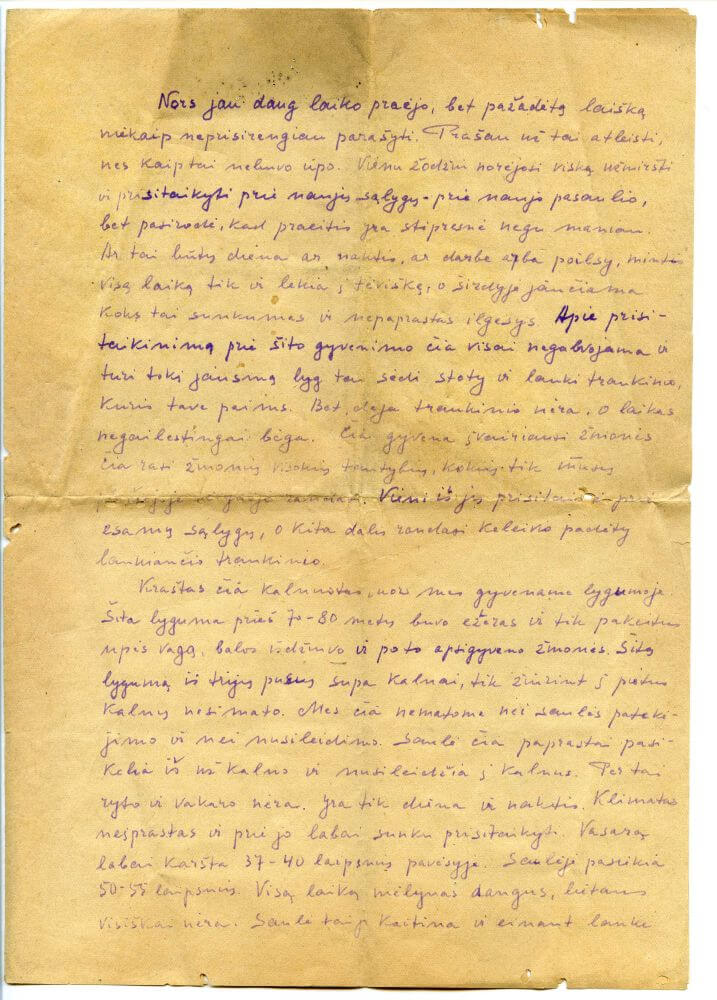 Nors jau daug laiko praėjo, bet pažadėtą laišką
niekaip neprisirengiau parašyti. Prašau už tai atleisti,
nes kaip tai nebuvo ūpo. Vienu žodžiu norėjosi viską užmiršti
ir prisitaikyti prie naujų sąlygų - prie naujo pasaulio,
bet pasirodė, kad praeitis yra stipresnė negu maniau.
Ar tai būtų diena ar naktis, ar darbe arba poilsy, mintis
visą laiką tik vi lekia į tėviškę, o širdyje jaučiama
koks tai sunkumas ir nepaprastas ilgesys. Apie prisi-
taikinimą prie šito gyvenimo čia visai negalvojama ir
turi tokį jausmą lyg tai sėdi stoty ir lauki traukinio,
kuris tave paims. Bet, deja traukinio nėra, o laikas
negailestingai bėga. Čia gyvena įvairiausi žmonės
čia rasi žmonių visokių tautybių, kokių tik mūsų
randasi. Vieni iš jų prisitaikė prie
esamų sąlygų, o kita dalis randasi keleivio padėty
laukiančio traukinio.
Kraštas čia kalnuotas, nors mes gyvename lygumoje.
Šita lyguma prieš 70-80 metų buvo ežeras ir tik pakeitus
upės vagą, balos išdžiuvo ir po to apsigyveno žmonės. Šitą
lygumą iš trijų pusių supa kalnai, tik žiūrint į pietus
kalnų nesimato. Mes čia nematome nei saulės patekė-
jimo ir nei nusileidimo. Saulė čia paprastai pasi-
kelia iš už kalno ir nusileidžia į kalnus. Per tai
ryto ir vakaro nėra. Yra tik diena ir naktis. Klimatas
neįprastas ir prie jo labai sunku prisitaikyti. Vasarą
labai karšta 37-40 laipsnių pavėsyje. Saulėje pasiekia
50-55 laipsnius. Visą laiką mėlynas dangus, lietaus
visiškai nėra. Saulė taip kaitina ir einant lauke